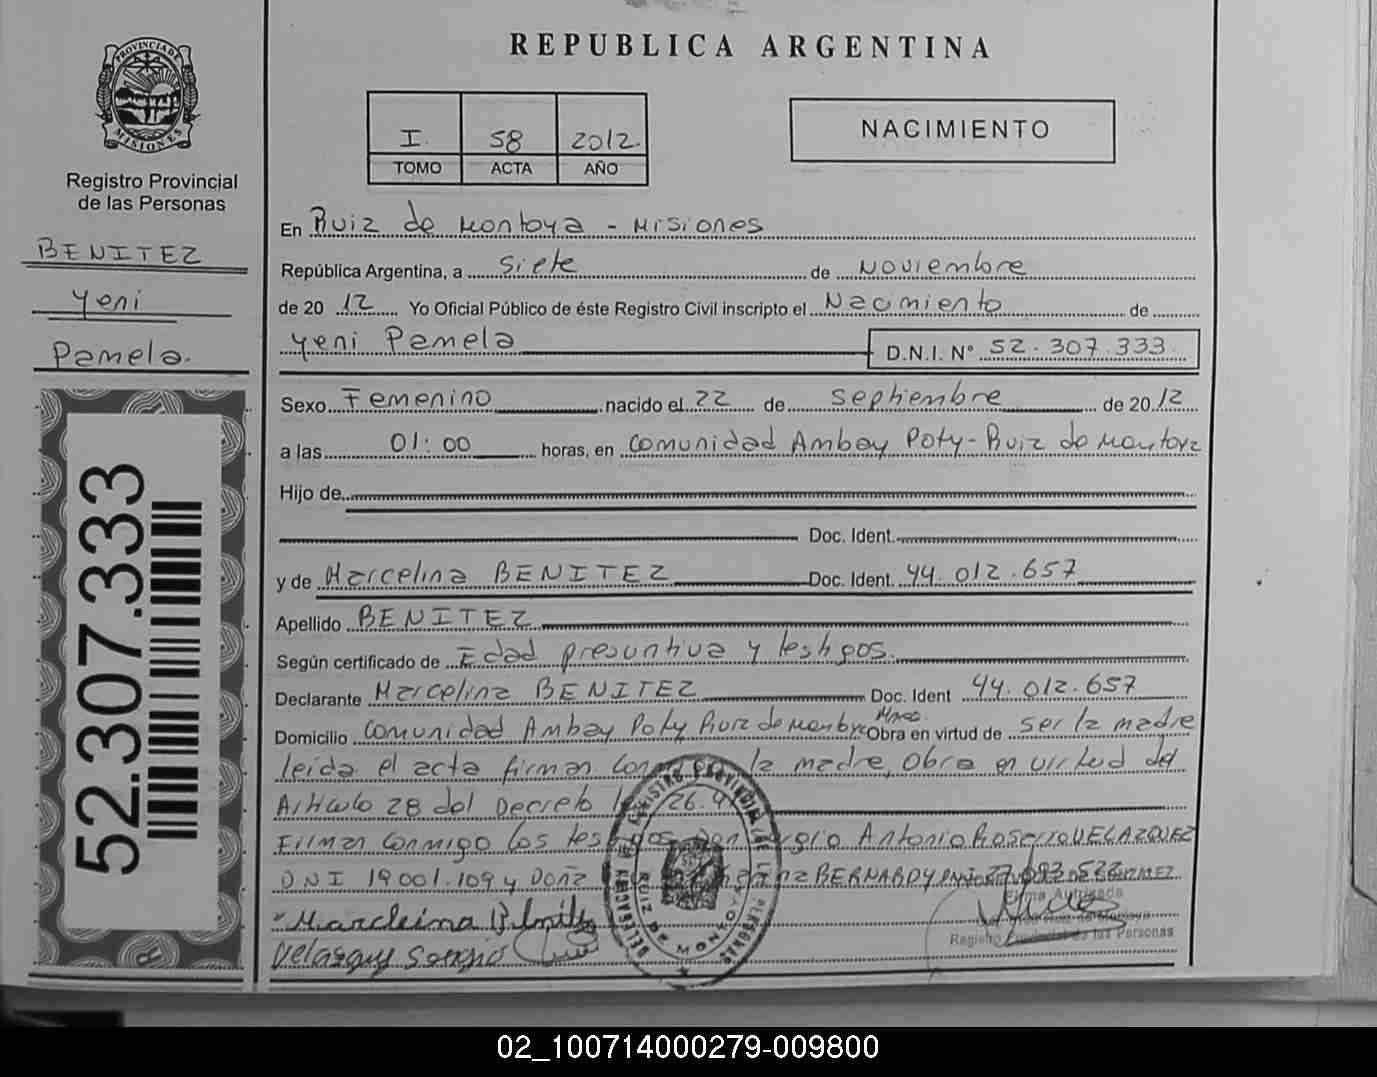 REPUBLICA ARGENTINA
PROVINCIA DE MISIONES
Registro Provincial
de las Personas
BENITEZ
Yeni
Pamela.
52.307.333
I. 58 2012.
TOMO ACTA AÑO
NACIMIENTO
En Ruiz de Montoya - Misiones
República Argentina, a siete de Noviembre
de 20 12 Yo Oficial Público de éste Registro Civil inscripto el Nacimiento de
Yeni Pamela D.N.I. N° 52.307.333
Sexo Femenino nacido el 22 de septiembre de 20 12
a las 01:00 horas, en Comunidad Ambay Poty - Ruiz de Montoya
Hijo de
Doc. Ident.
y de Marcelina BENITEZ Doc. Ident. 44.012.657
Apellido BENITEZ
Según certificado de Edad presuntiva y testigos.
Declarante Marcelina BENITEZ Doc. Ident 44.012.657
Domicilio Comunidad Ambay Poty Ruiz de Montoya Mnes. Obra en virtud de ser la madre
leida el acta firman la madre, Obra en virtud del
Articulo 28 del Decreto
Firman conmigo los testigos Don Sergio Antonio Roserio VELAZQUEZ
DNI 19.001.109 y Doña BERNARDY DNI
Marcleina Benitez
Velazquez Sergio
REGISTRO PROVINCIAL DE LAS PERSONAS
DELEGACION
RUIZ DE MONTOYA
Firma Autorizada
Registro Provincial de las Personas
02_100714000279-009800